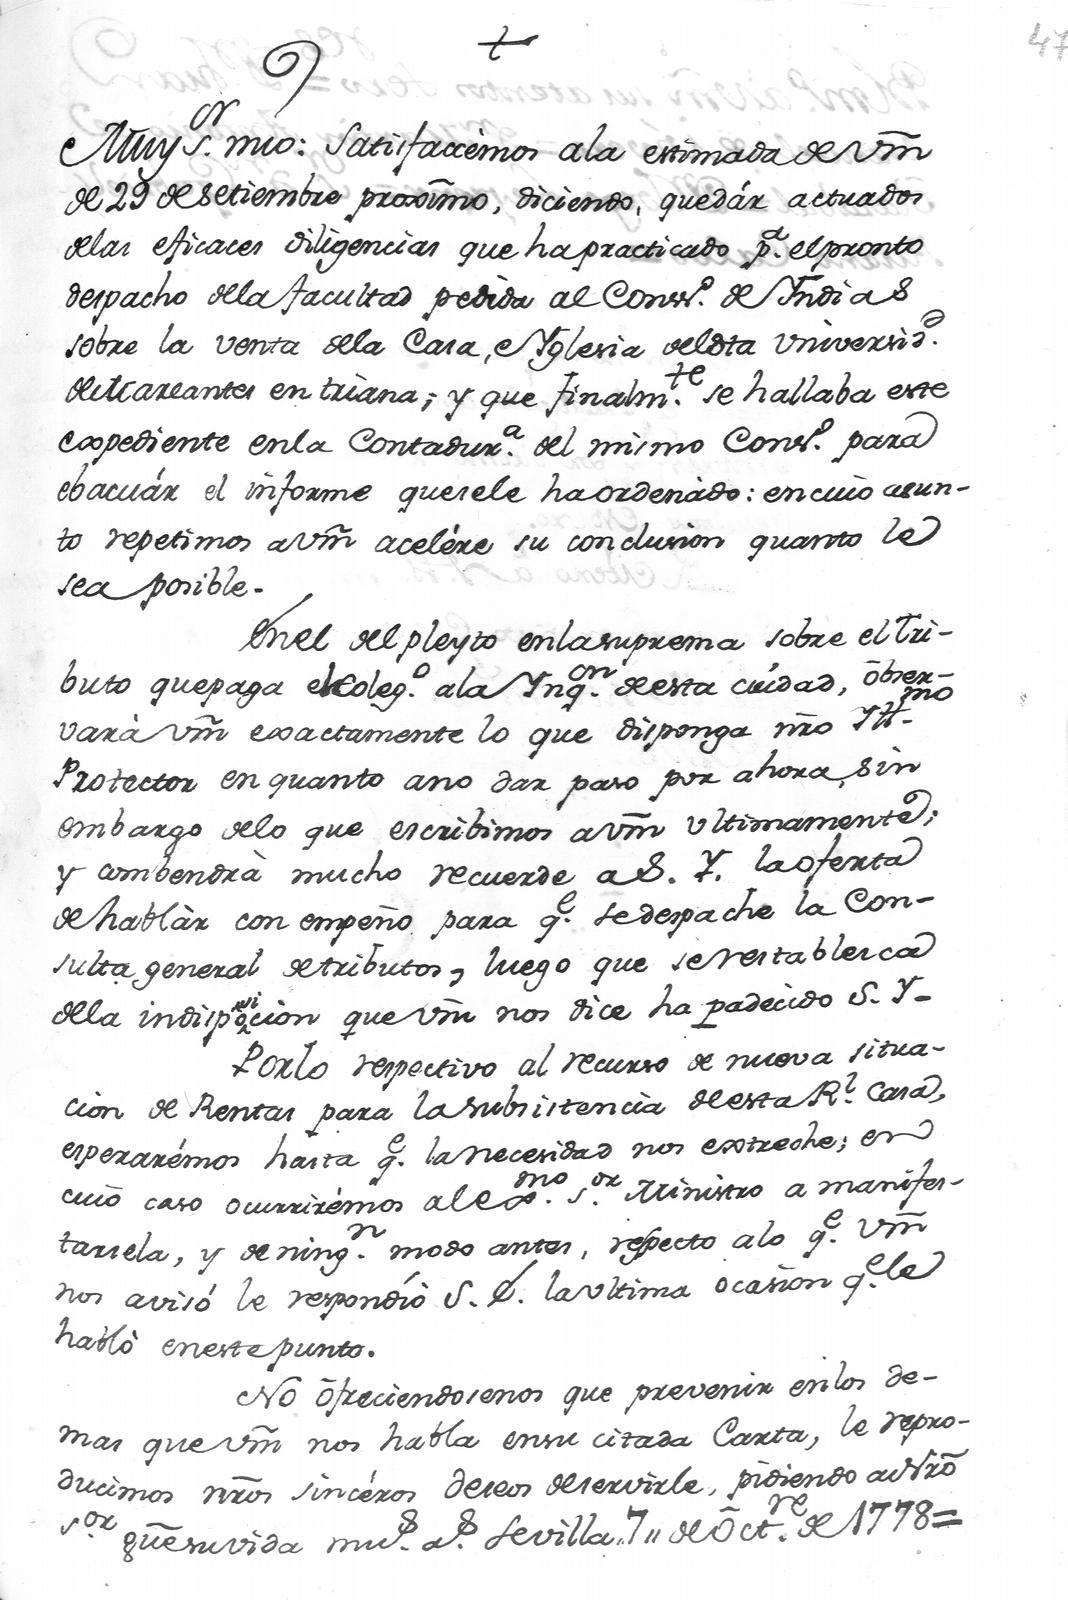 47
Muy s.or mio: Satisfacémos ala estimada de Vm̃
de 29 de setiembre proxîmo, diciendo, quedár actuados
delas eficaces diligencias que ha practicado p.a el pronto
despacho dela facultad pedida al Cons.o de Yndias
sobre la venta dela Casa, e Yglesia del dta Universid.d
de Mareantes en triana; y que finalm.te se hallaba este
expediente enla Contadur.a del mismo Cons.o para
ebacuár el informe que sele ha ordenádo: en cuio asun-
to repetimos a Vm̃ acelére su conclusion quanto le
sea posible.
Enel del pleyto enla suprema sobre el tri-
buto que paga el Coleg.o ala Ynq.on de esta ciudad, obser-
vará Vm̃ exactamente lo que disponga nr̃o Ytt.mo
Protector en quanto ano dar paso por ahora, sin
embargo delo que escribimos a Vm̃ ultimamente;
y combendrà mucho recuerde a S. Y. la oferta
de hablàr con empeño para q.e se despache la Con-
sulta general de tributos, luego que se restablesca
dela indisposicion que Vm̃ nos dice ha padecido S. Y.
Porlo respectivo al recurso de nueva situa-
cion de Rentas para la subsistencia de esta R.l Casa,
esperarémos hasta q.e la necesidad nos extreche; en
cuio caso ocurrirémos al Ex.mo s.or Ministro a manifes-
tarsela, y de ning.n modo antes, respecto alo q.e Vm̃
nos avisó le respondió S. E. la ultima ocasion q.e le
habló en este punto.
No ofreciendosenos que prevenir enlos de-
mas que Vm̃ nos habla ensu citada Carta, le repro-
ducimos nr̃os sincéros deseos de servirle, pidiendo a Nr̃o
s.or gũe su vida mu.s a.s Sevilla, 7,, de Oct.re de 1778=